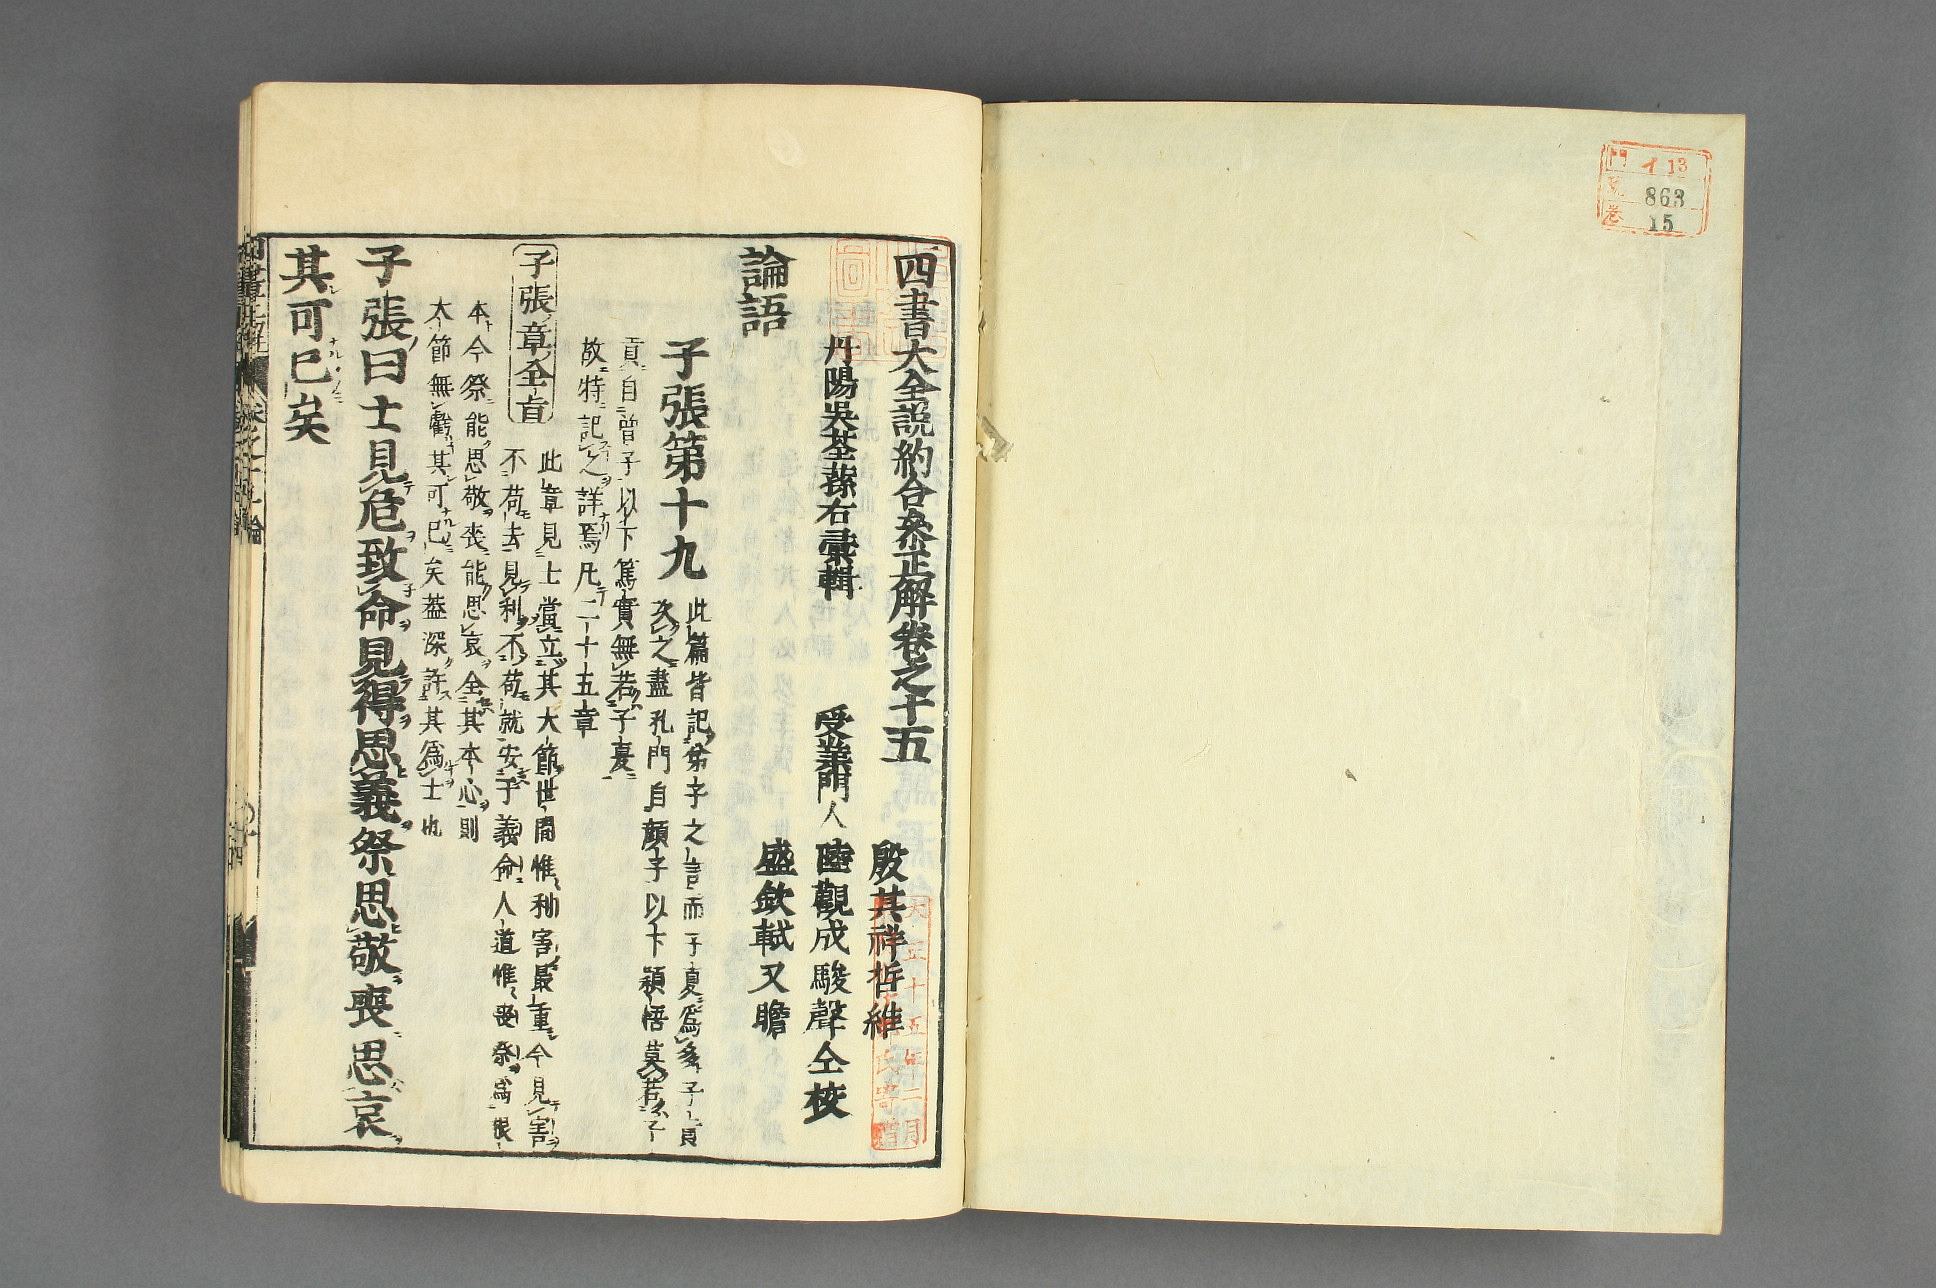 門 イ13
号 863
巻 15
四書大全説約合參正解卷之十五
丹陽吳荃蓀右彙輯
受業門人
殷其祥哲維
陸觀成駿聲仝校
盛欽軾又瞻
論語
子張第十九
此篇皆記弟子之言而子夏爲多子貢
次之蓋孔門自顏子以下穎悟莫若子
貢自曾子以下篤實無若子夏
故特記之詳焉凡二十五章
子張章全旨
此章見士當立其大節世間惟利害最重今見害
不苟去見利不苟就安于義命人道惟喪祭爲根
本今祭能思敬喪能思哀全其本心則
大節無虧其可已矣蓋深許其爲士也
子張曰士見危致命見得思義祭思敬喪思哀
其可已矣